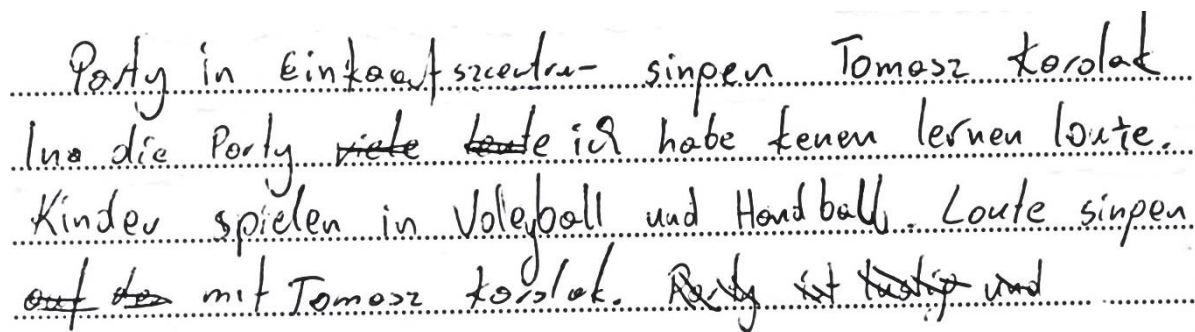 Party in Einkaufszcentru- singen Tomasz Korolak
Ina die Party viele leute ich habe kenen lernen loute.
Kinder spielen in Voleyball und Handball. Loute singen
auf der mit Tomasz Korolak. Party ist lustig und